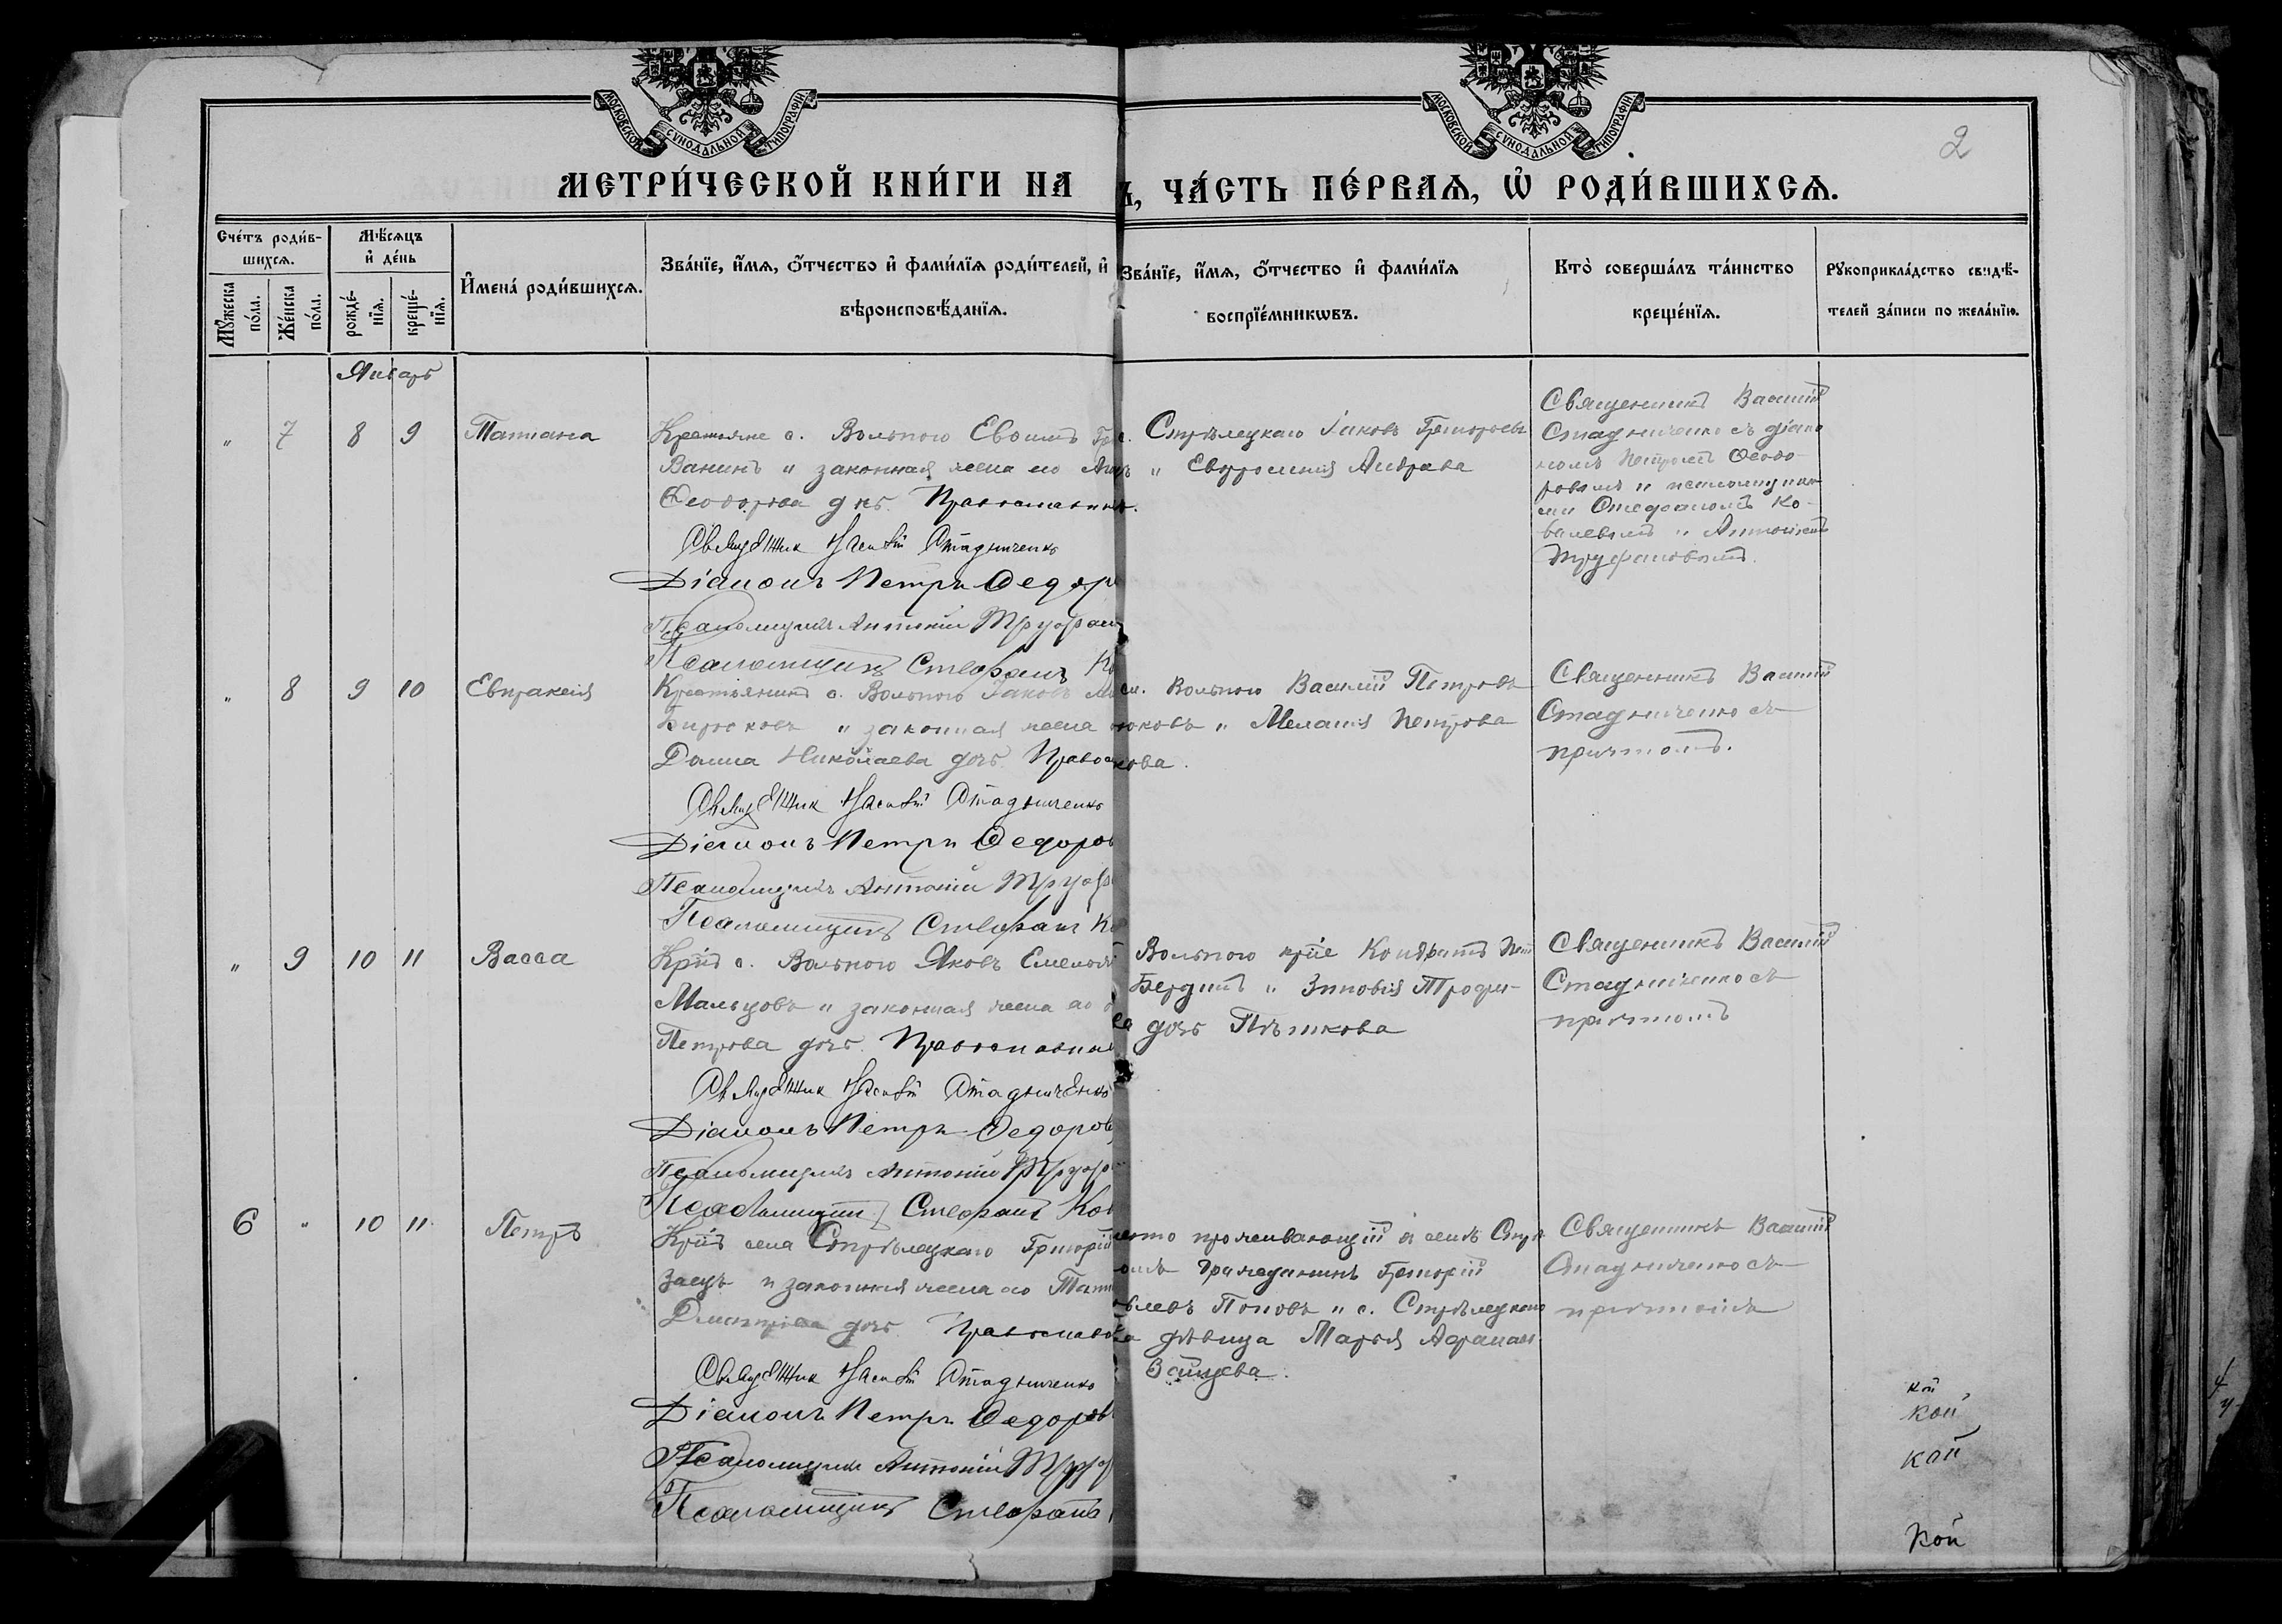 МОСКОВСКОЙ СѴНОДАЛЬНОЙ ТИПОГРАФІИ
МОСКОВСКОЙ СѴНОДАЛЬНОЙ ТИПОГРАФІИ
2
МЕТРИ́ЧЕСКОЙ КНИ́ГИ НА
Ъ, ЧА́СТЬ ПЕ́РВАѦ, Ѡ҆ РОДИ́ВШИХСѦ.
Сче́тъ роди́в-
шихсѧ.
Мꙋ́жеска по́ла.
Же́нска по́ла.
Мѣ́сѧцъ
и҆ де́нь
рожде́-
нїѧ.
креще́-
нїѧ.
И҆мена́ роди́вшихсѧ.
Зва́нїе, и҆́мѧ, ѻ҆́тчество и҆ фами́лїѧ роди́телей, и҆
вѣроисповѣ́данїѧ.
Зва́нїе, и҆́мѧ, ѻ҆́тчество и҆ фами́лїѧ
воспрїе́мникѡвъ.
Кто̀ соверша́лъ та́инство
креще́нїѧ.
Рꙋкоприкла́дство свидѣ́-
телей за́писи по жела́нїю.
Январь
" 7 8 9 Татиана
Крестьяне с. Вольного Евоимъ
Ванинъ и законная жена его
Феодорова дчь. Православные.
Священик Василій Стадниченко
Діаконъ Петръ Федоро
Псаломщикъ Антоній Труфан
Псаломщикъ Стефанъ Ко
с. Стрѣлецкаго Іаковъ Григорьевъ
и Евфросинія Андреева
Священникъ Василій
Стадниченко съ діако
номъ Петромъ Ѳеодо-
ровымъ и псаломщика
ми Стефаномъ Ко-
валевымъ и Антоніемъ
Труфановымъ.
" 8 9 10 Евпраксія
Крестьянинъ с. Вольного Іаковъ
Бирюковъ и законная жена
Домна Николаева дочь. Правос
Священик Василій Стадниченко
Діаконъ Петръ Федоров
Псаломщикъ Антоній Труф
Псаломщикъ Стефанъ Ко
с. Вольного Василій Петровъ
юковъ и Меланія Петрова
кова.
Священникъ Василій
Стадниченко съ
причтомъ.
" 9 10 11 Васса
Крнъ с. Вольного Яковъ Емельян
Мальцовъ и законная жена его
Петрова дочь. Православные
Священик Василій Стадниченко
Діаконъ Петръ Федоров
Псаломщикъ Антоній Труф
Псаломщикъ Стефанъ Ков
Вольного крне Кондратъ
Бердинъ и Зиновія Трофи-
ва дочь Пѣшкова
Священникъ Василій
Стадниченко съ
причтомъ
6 " 10 11 Петръ
Крнъ села Стрѣлецкаго Григорій
Заецъ и законная жена его Тати
Дмитріева дочь. Православ
Священик Василій Стадниченко
Діаконъ Петръ Федоров
Псаломщикъ Антоній Труф
Псаломщикъ Стефанъ
проживающій въ селѣ Стрѣ
омъ гражданинъ Григорій
влевъ Поповъ и с. Стрѣлецкаго
дѣвица Марья Афанась
Зайцева.
Священникъ Василій
Стадниченко съ
причтомъ
кой
кой
кой
кой